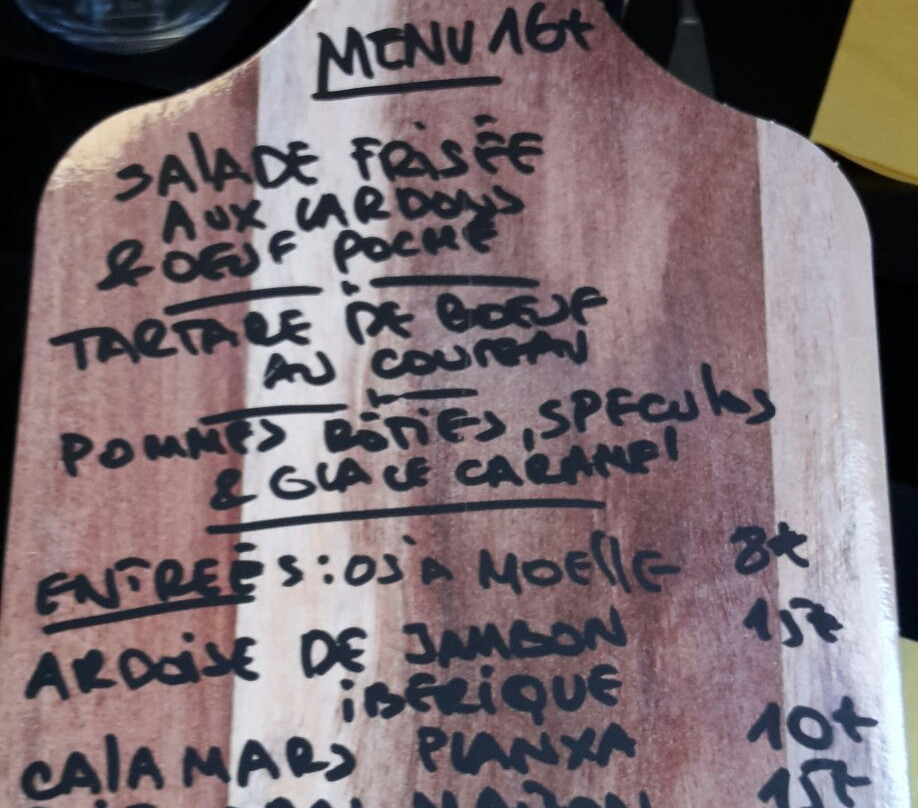 MENU 16€
SALADE FRISÉE
AUX LARDONS
& OEUF POCHÉ
TARTARE DE BOEUF
AU COUTEAU
POMMES RÔTIES, SPECULOS
& GLACE CARAMEL
ENTREÉS: OS À MOELLE 8€
ARDOISE DE JAMBON 15€
IBERIQUE
CALAMARS PLANXA 10€
MAISON 15€